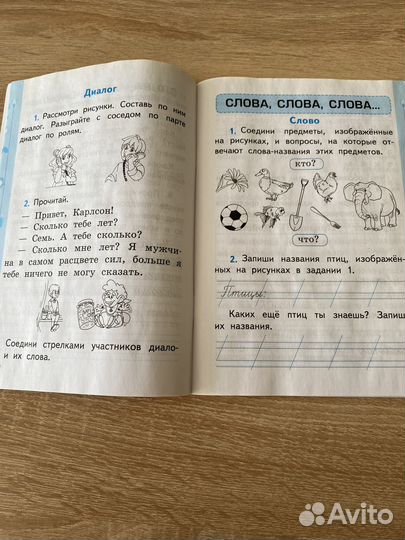 Диалог
1. Рассмотри рисунки. Составь по ним
диалог. Разыграйте с соседом по парте
диалог по ролям.
2. Прочитай.
— Привет, Карлсон!
— Сколько тебе лет?
— Семь. А тебе сколько?
— Сколько мне лет? Я мужчи-
на в самом расцвете сил, больше я
тебе ничего не могу сказать.
Соедини стрелками участников диало-
и их слова.
СЛОВА, СЛОВА, СЛОВА...
Слово
1. Соедини предметы, изображённые
на рисунках, и вопросы, на которые от-
вечают слова-названия этих предметов.
кто?
что?
2. Запиши названия птиц, изображён-
ных на рисунках в задании 1.
Птицы:
Каких ещё птиц ты знаешь? Запиши
их названия.
Avito